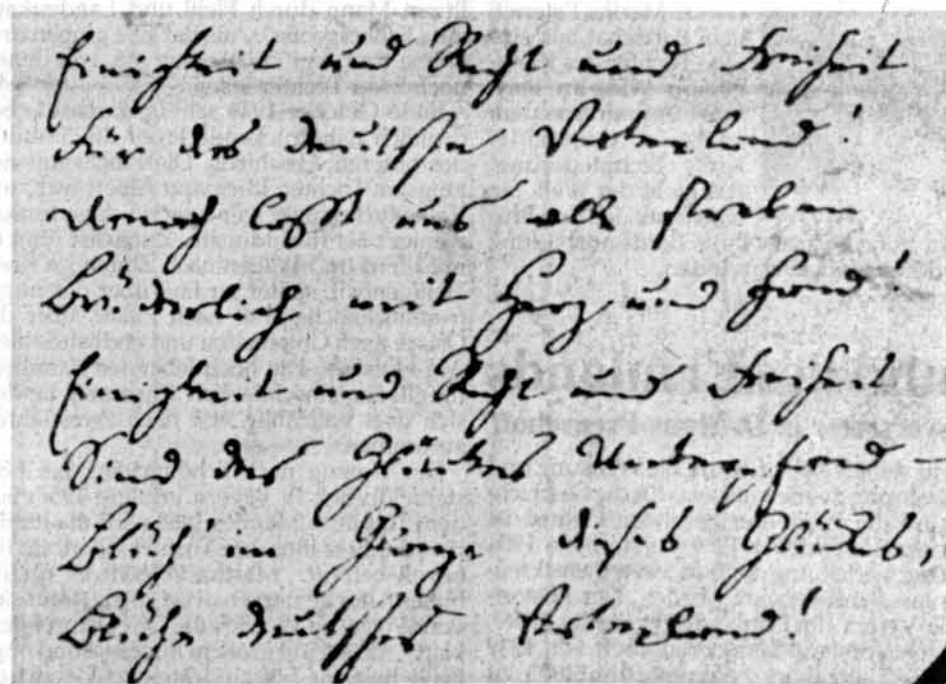 Einigkeit und Recht und Freiheit
Für das deutsche Vaterland!
Danach lasst uns alle streben
Brüderlich mit Herz und Hand!
Einigkeit und Recht und Freiheit
Sind des Glückes Unterpfand –
Blüh im Glanze dieses Glückes,
Blühe deutsches Vaterland!